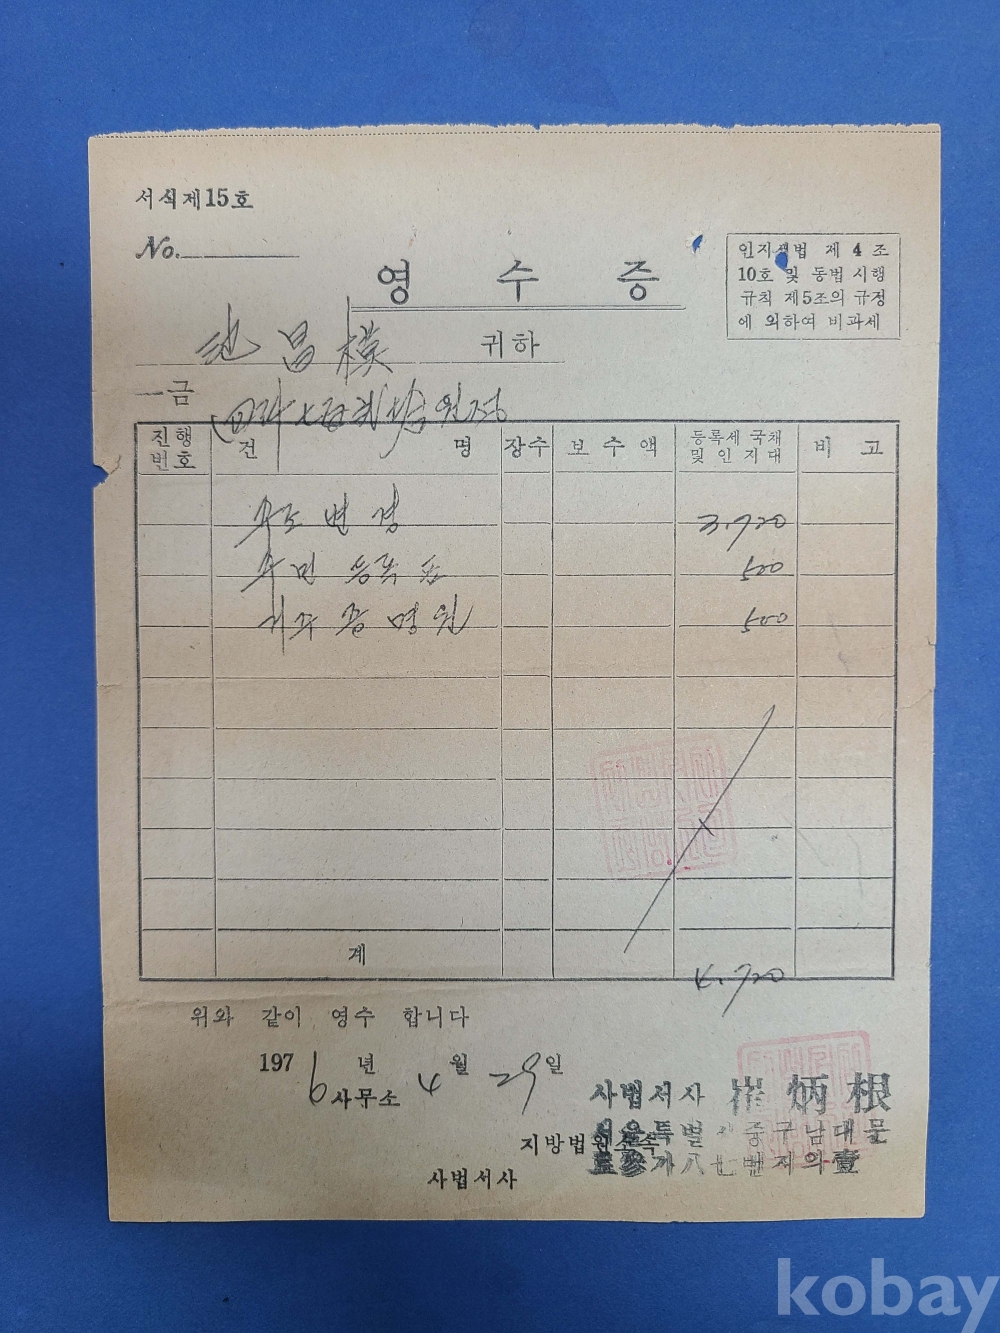 서식제15호
No.
영 수 증
인지세법 제 4 조
10호 및 동법 시행
규칙 제5조의 규정
에 의하여 비과세
池 昌 模 귀하
一금 원정
진행번호 건 명 장수 보 수 액 등록세 국채 및 인 지 대 비 고
주소 변경 3,720
주민 등록 500
거주 증명원 500
계 4,720
위와 같이 영수 합니다
1976년 4월 29일
사무소
사법서사 崔炳根
서울특별시중구남대문
지방법원소속
五參가八七번지의壹
사법서사
kobay